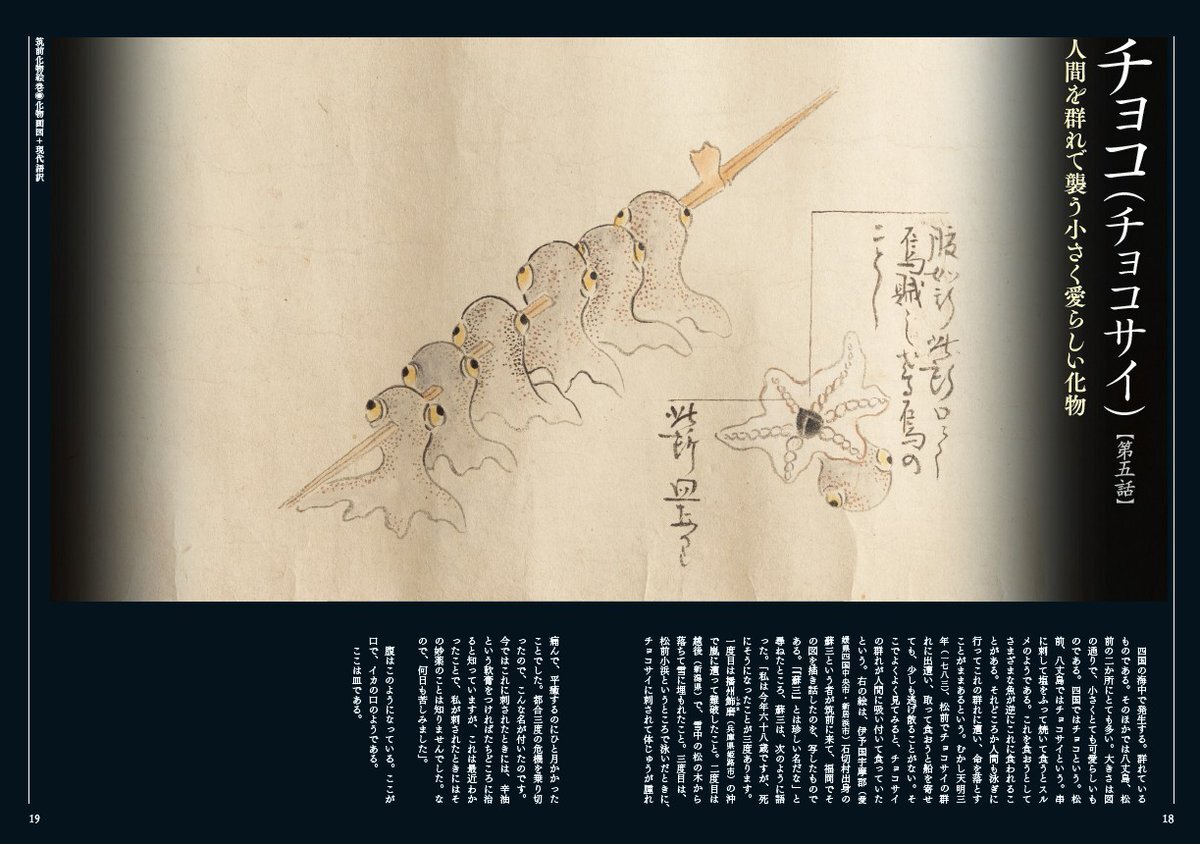 チョコ（チョコサイ）【第五話】
人間を群れで襲う小さく愛らしい化物
此所
四国の海中で発生する。群れている
ものである。そのほかでは八丈島、松
前の二か所にとても多い。大きさは図
の通りで、小さくとても可愛らしいも
のである。四国ではチョコという。松
前、八丈島ではチョコサイという。串
に刺して塩をふって焼いて食うとスル
メのようである。これを食おうとして
さまざまな魚が逆にこれに食われるこ
とがある。それどころか人間も泳ぎに
行ってこれの群れに遭い、命を落とす
ことがままあるという。むかし天明三
年（一七八三）、松前でチョコサイの群
れに出遭い、取って食おうと船を寄せ
ても、少しも逃げ散ることがない。そ
こでよくよく見てみると、チョコサイ
の群れが人間に吸い付いて食っていた
という。右の絵は、伊予国宇摩郡（愛
媛県四国中央市・新居浜市）石切村出身の
蘇三という者が筑前に来て、福岡でそ
の図を描き話したのを、写したもので
ある。「『蘇三』とは珍しい名だな」と
尋ねたところ、蘇三は、次のように語
った。「私は今年六十八歳ですが、死
にそうになったことが三度あります。
一度目は播州飾磨（兵庫県姫路市）の沖
で嵐に遭って難破したこと。二度目は
越後（新潟県）で、雪中の松の木から
落ちて雪に埋もれたこと。三度目は、
松前小浜というところで泳いだときに、
チョコサイに刺されて体じゅうが腫れ
痛んで、平癒するのにひと月かかった
ことでした。都合三度の危機を乗り切
ったので、こんな名が付いたのです。
今ではこれに刺されたときには、辛油
という軟膏をつければたちどころに治
ると知っていますが、これは最近わか
ったことで、私が刺されたときにはそ
の妙薬のことは知りませんでした。な
ので、何日も苦しみました」。
腹はこのようになっている。ここが
口で、イカの口のようである。
ここは皿である。
筑前化物絵巻◉化物画図＋現代語訳
18
19